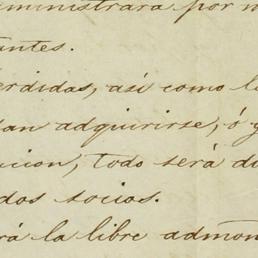 administrará por m
antes.
erdidas, así como l
an adquirirse, ó g
icion, todo será d
dos socios.
rá la libre admon